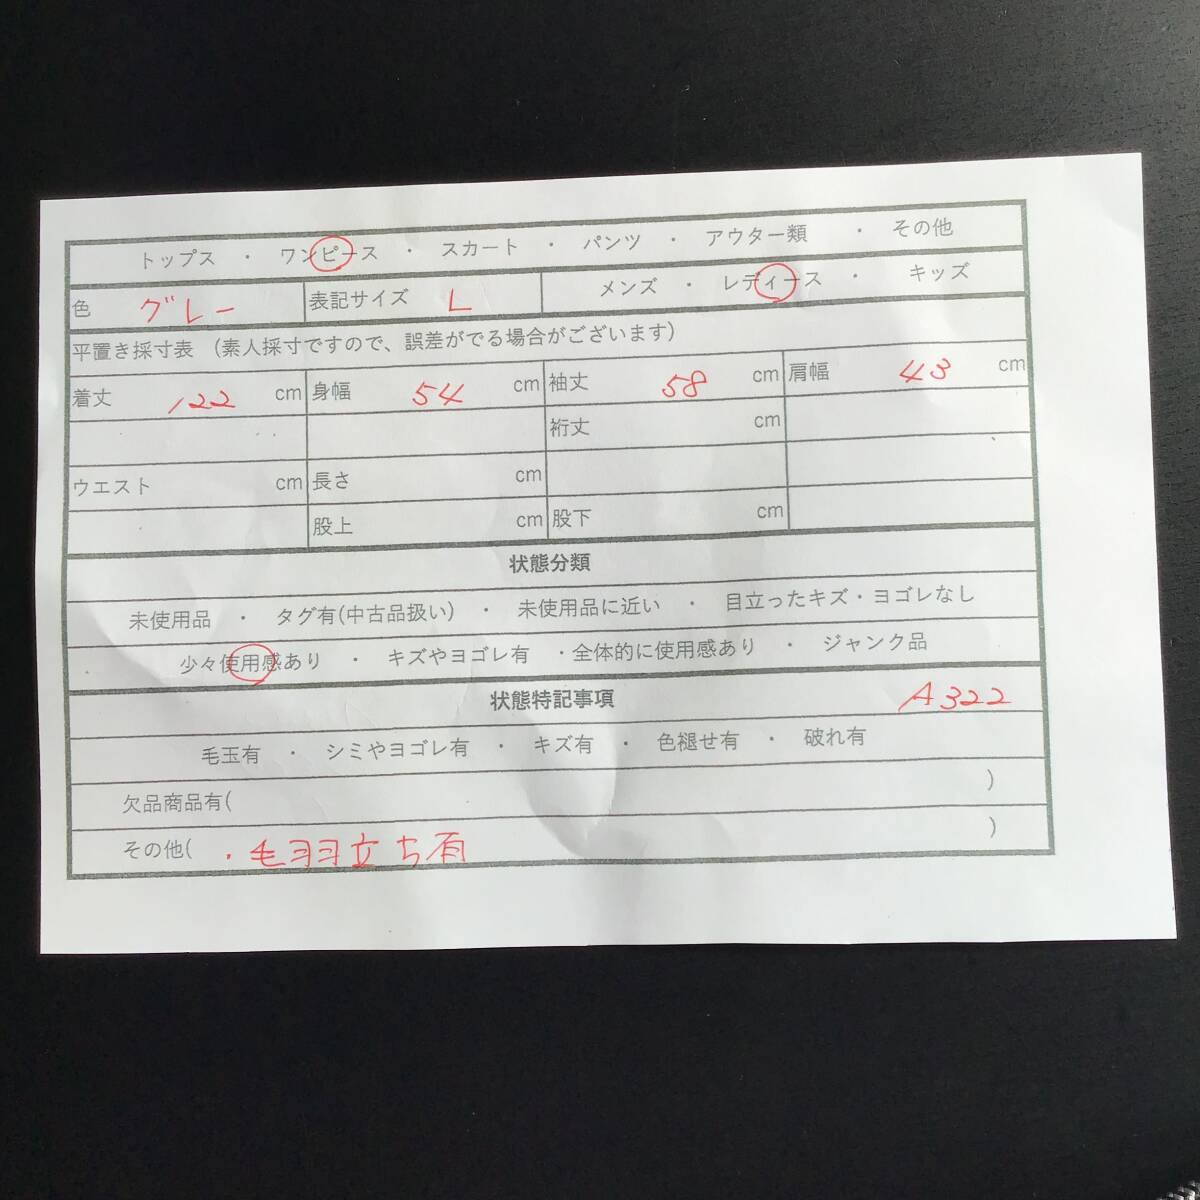 トップス ・ ワンピース ・ スカート ・ パンツ ・ アウター類 ・ その他
色 グレー 表記サイズ L メンズ ・ レディース ・ キッズ
平置き採寸表 (素人採寸ですので、誤差がでる場合がございます)
着丈 122 cm 身幅 54 cm 袖丈 58 cm 肩幅 43 cm
裄丈 cm
ウエスト cm 長さ cm
股上 cm 股下 cm
状態分類
未使用品 ・ タグ有(中古品扱い) ・ 未使用品に近い ・ 目立ったキズ・ヨゴレなし
少々使用感あり ・ キズやヨゴレ有 ・全体的に使用感あり ・ ジャンク品
状態特記事項 A322
毛玉有 ・ シミやヨゴレ有 ・ キズ有 ・ 色褪せ有 ・ 破れ有
欠品商品有( )
その他( ・毛羽立ち有 )